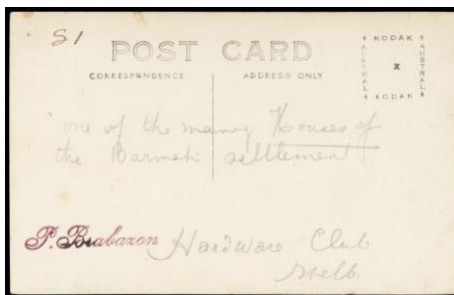 81
POST CARD
CORRESPONDENCE
ADDRESS ONLY
KODAK
AUSTRAL
AUSTRAL
KODAK
one of the many Houses of
the Barmah settlement
P. Brabazon Hardware Club
Melb